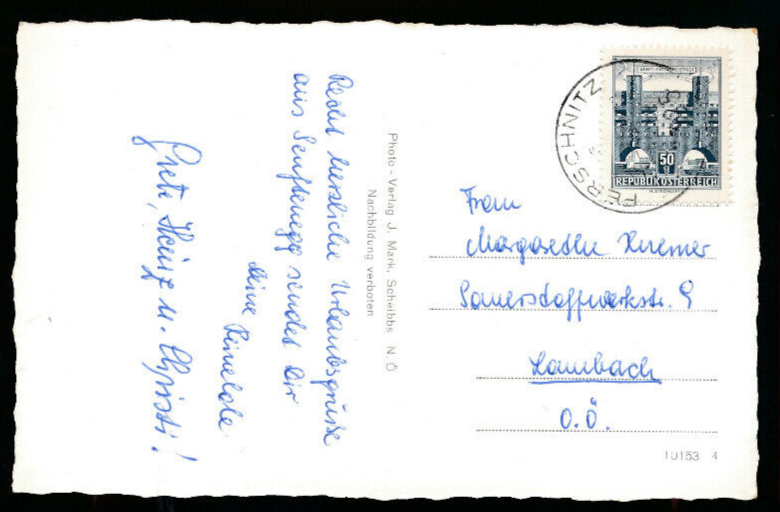 Recht herzliche Urlaubsgrüße
aus Senftenegg sendet Dir
deine
Grete, Heinz u. Christi!
Photo - Verlag J. Mark, Scheibbs N. Ö
Nachbildung verboten
FERSCHNITZ
50 g
REPUBLIK ÖSTERREICH
Frau
Margarethe Kremer
Sauerstoffwerkstr. 9
Lambach
O.Ö.
10153 4